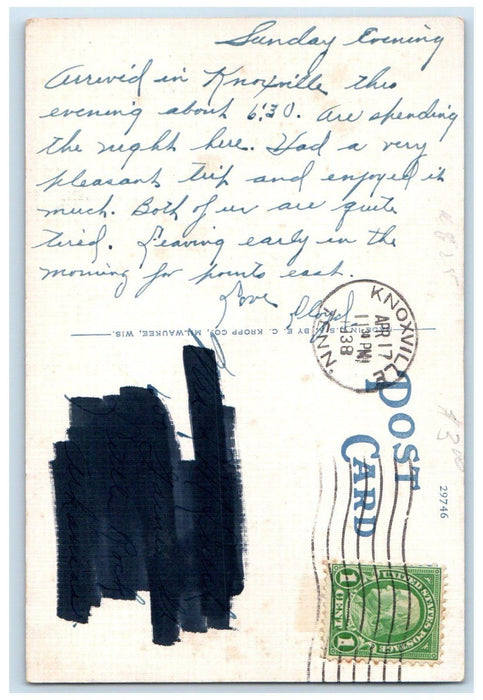 Sunday Evening
Arrived in Knoxville this
evening about 6:30. Are spending
the night here. Had a very
pleasant trip and enjoyed it
much. Both of us are quite
tired. Leaving early in the
morning for points east.
Love
Lloyd
MADE IN U.S.A. BY E. C. KROPP CO., MILWAUKEE, WIS.
KNOXVILLE
TENN.
APR 17
11 30 PM
1938
POST
CARD
29746
UNITED STATES POSTAGE
1 CENT 1